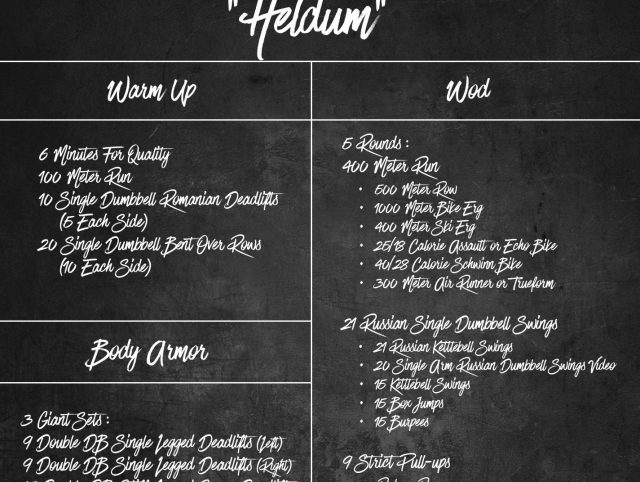 "Heldum"
Warm Up
6 Minutes For Quality
100 Meter Run
10 Single Dumbbell Romanian Deadlifts
(5 Each Side)
20 Single Dumbbell Bent Over Rows
(10 Each Side)
Body Armor
3 Giant Sets:
9 Double DB Single Legged Deadlifts (Left)
9 Double DB Single Legged Deadlifts (Right)
Wod
5 Rounds:
400 Meter Run
• 500 Meter Row
• 1000 Meter Bike Erg
• 400 Meter Ski Erg
• 25/18 Calorie Assault or Echo Bike
• 40/28 Calorie Schwinn Bike
• 300 Meter Air Runner or Trueform
21 Russian Single Dumbbell Swings
• 21 Russian Kettlebell Swings
• 20 Single Arm Russian Dumbbell Swings Video
• 15 Kettlebell Swings
• 15 Box Jumps
• 15 Burpees
9 Strict Pull-ups